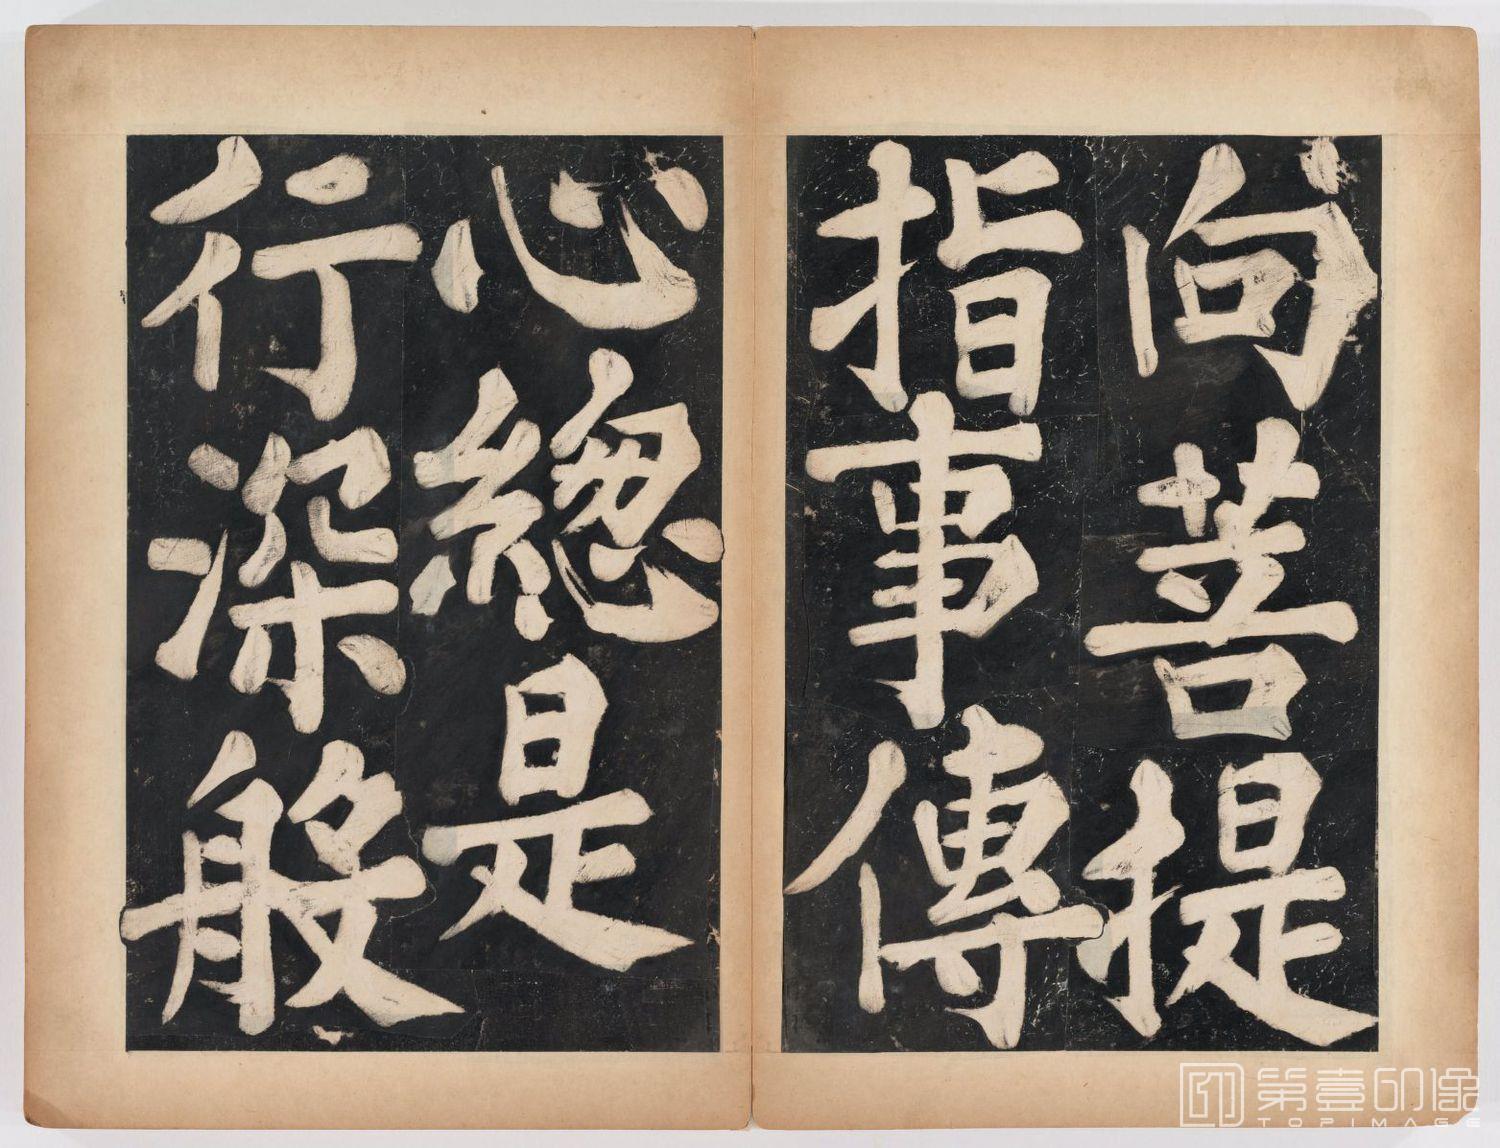 向菩提
指事傳
心總是
行深般
第壹印像
TOPIMAGE